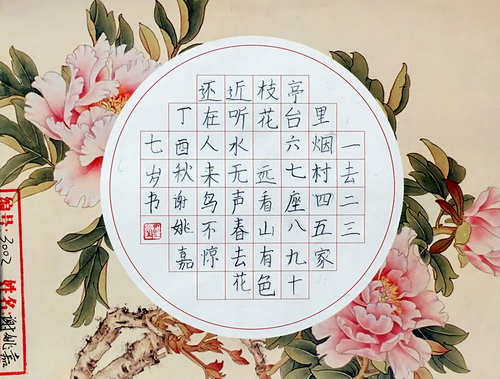 一去二三
里烟村四五家
亭台六七座八九十
枝花 远看山有色
近听水无声春去花
还在人来鸟不惊
丁酉秋谢姚嘉
七岁书
编号:3002 姓名:谢姚嘉